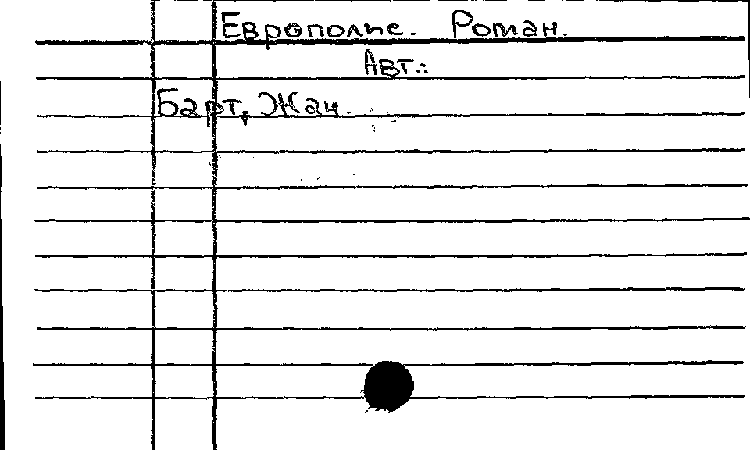 Европолис. Роман.
Авт.:
Барт, Жан.